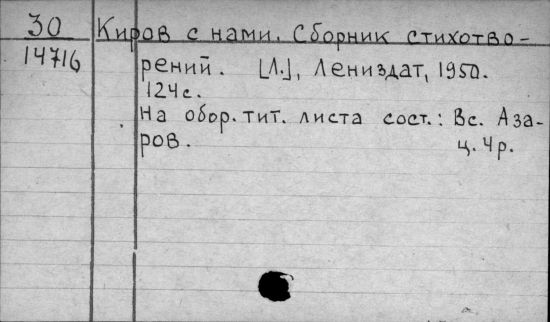 30 Киров с нами. Сборник стихотво-
14716 рений. [Л.], Лениздат, 1950.
124с.
На обор. тит. листа сост.: Вс. Аза-
ров. ц. 4р.